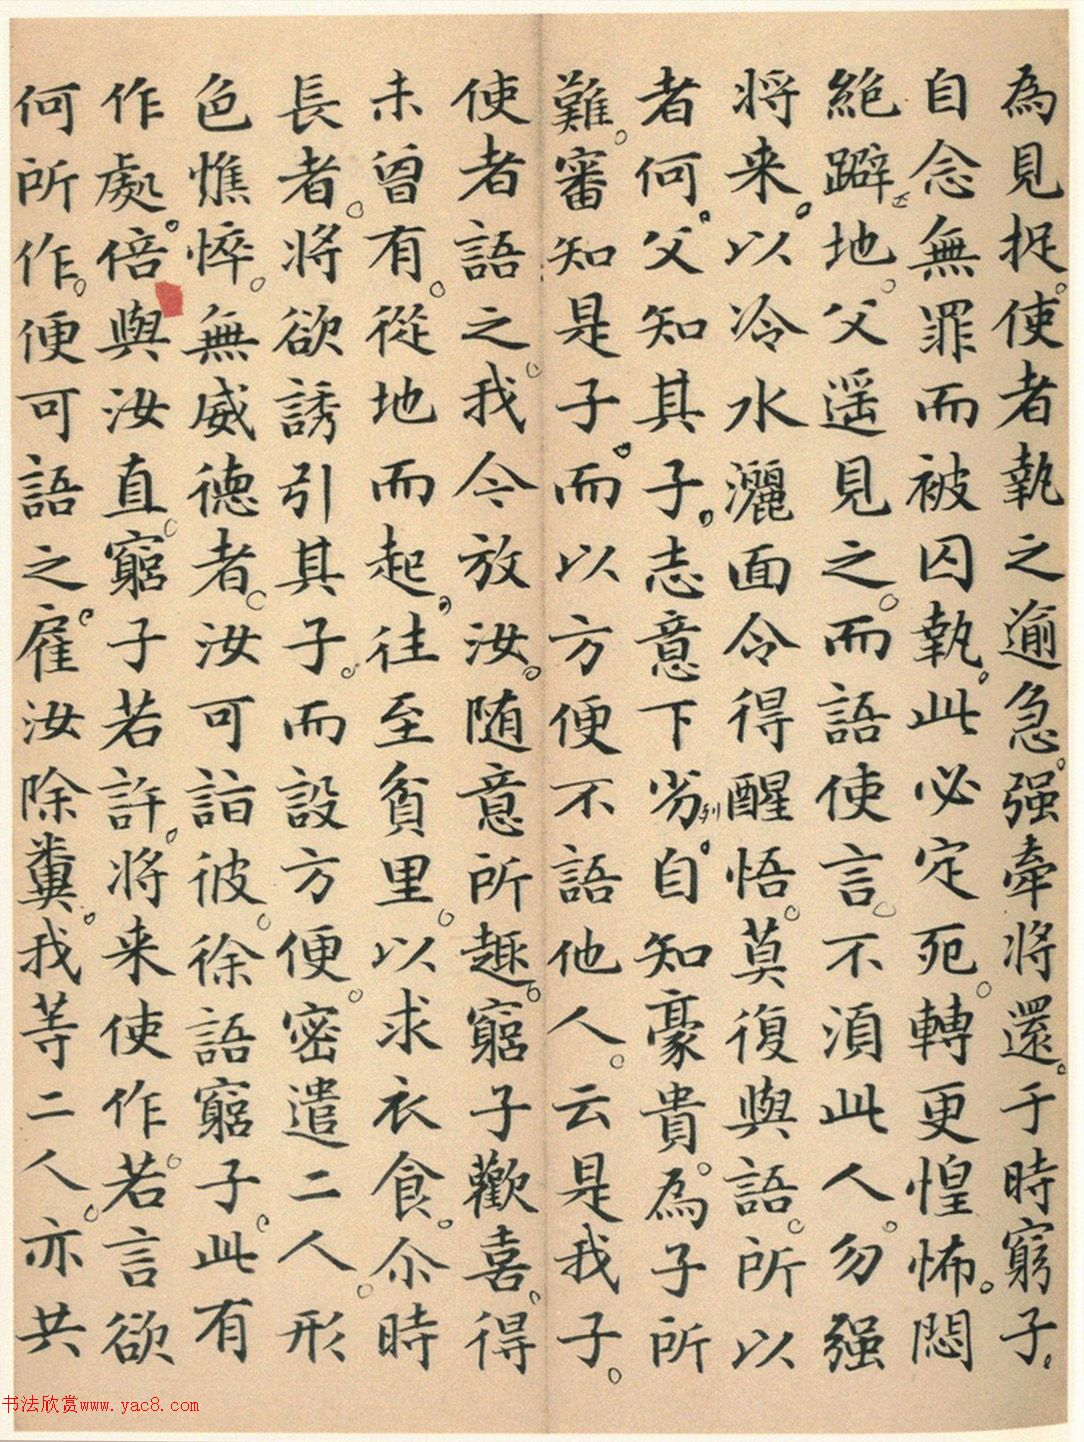 為見捉使者執之逾急强牽將還于時窮子
自念無罪而被囚執此必定死轉更惶怖悶
絶躃地父遥見之而語使言不湏此人勿强
將来以冷水灑面令得醒悟莫復與語所以
者何父知其子志意下劣自知豪貴為子所
難審知是子而以方便不語他人云是我子
使者語之我今放汝随意所趣窮子歡喜得
未曾有從地而起往至貧里以求衣食尒時
長者將欲誘引其子而設方便密遣二人形
色憔悴無威德者汝可詣彼徐語窮子此有
作處倍與汝直窮子若許將来使作若言欲
何所作便可語之雇汝除糞我等二人亦共
书法欣赏www.yac8.com